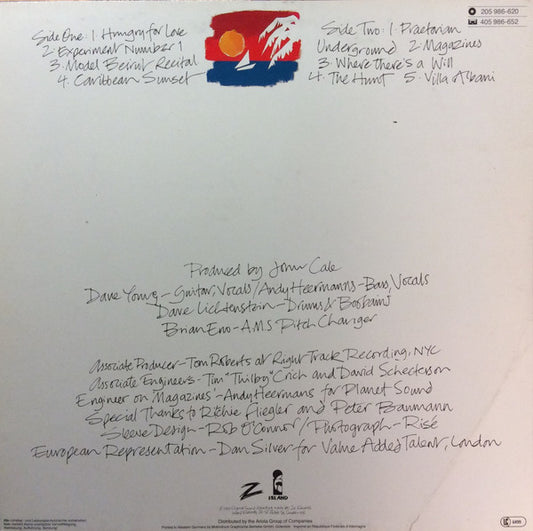 Side One: 1 Hungry for Love
2 Experiment Number 1
3. Model Beirut Recital
4. Caribbean Sunset
Side Two: 1. Praetorian
Underground 2. Magazines
3. Where there's a Will
4. The Hunt 5. Villa Albani
205 986-620
405 986-652
Produced by John Cale
Dave Young - Guitar, Vocals / Andy Heermanns - Bass, Vocals
Dave Lichtenstein - Drums &
Brian Eno - A.M.S Pitch Changer
Associate Producer - Tom Roberts at Right Track Recording, NYC
Associate Engineers - Tim "Thilby" Crich and David Scheckson
Engineer on Magazines - Andy Heermans for Planet Sound
Special Thanks to Ritchie Fliegler and Peter Baumann
Sleeve Design - Rob O'Connor / Photograph - Risé
European Representation - Dan Silver for Value Added Talent, London
Z
ISLAND
Distributed by the Ariola Group of Companies